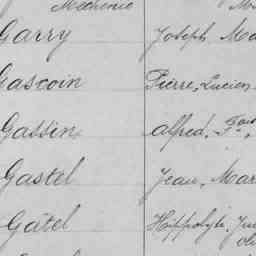 Garry Joseph
Gascoin Pierre, Lucien
Gassin Alfred,
Gastel Jean, Mar
Gatel Hippolyte, Ju